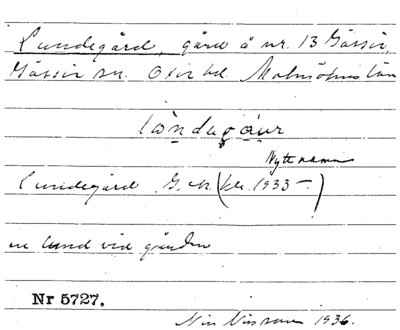 Lundegård, gård å nr. 13 Gässie,
Gässie sn. Oxie hd. Malmöhus län
löndegaur
Nytt namn
Lundegård G.K. (fr. 1933 –)
en lund vid gården
Nr 5727.
Nils Nilsson 1936.